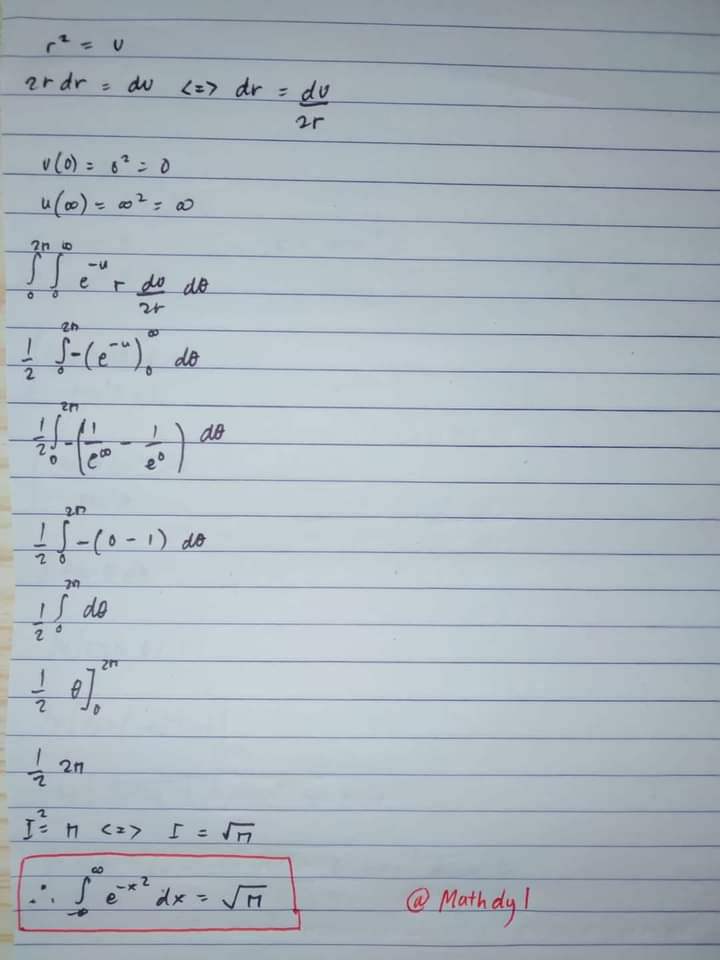 r² = u
2r dr = du <=> dr = du/2r
u(0) = 0² = 0
u(∞) = ∞² = ∞
∫₀^2π ∫₀^∞ e^-u r du/2r dθ
1/2 ∫₀^2π -(e^-u)₀^∞ dθ
1/2 ∫₀^2π -(1/e^∞ - 1/e^0) dθ
1/2 ∫₀^2π -(0 - 1) dθ
1/2 ∫₀^2π dθ
1/2 θ]₀^2π
1/2 2π
I² = π <=> I = √π
∴ ∫_-∞^∞ e^-x² dx = √π
@Mathdy1